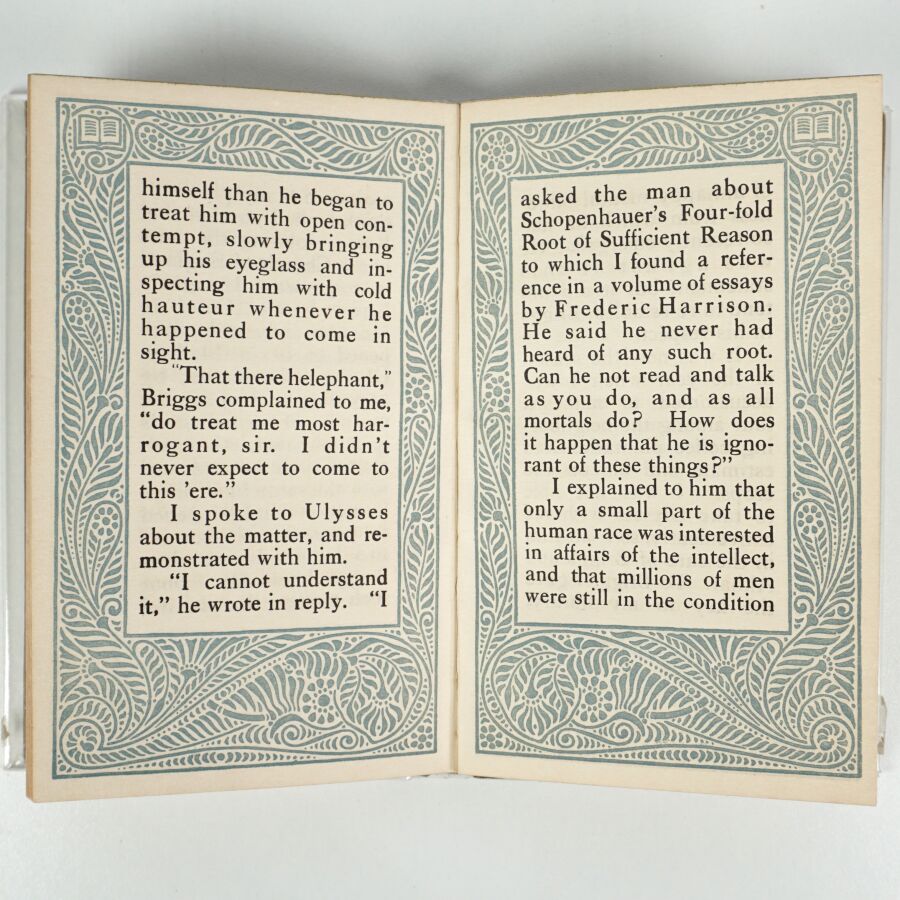 himself than he began to
treat him with open con-
tempt, slowly bringing
up his eyeglass and in-
specting him with cold
hauteur whenever he
happened to come in
sight.
"That there helephant,"
Briggs complained to me,
"do treat me most har-
rogant, sir. I didn't
never expect to come to
this 'ere."
I spoke to Ulysses
about the matter, and re-
monstrated with him.
"I cannot understand
it," he wrote in reply. "I
asked the man about
Schopenhauer's Four-fold
Root of Sufficient Reason
to which I found a refer-
ence in a volume of essays
by Frederic Harrison.
He said he never had
heard of any such root.
Can he not read and talk
as you do, and as all
mortals do? How does
it happen that he is igno-
rant of these things?"
I explained to him that
only a small part of the
human race was interested
in affairs of the intellect,
and that millions of men
were still in the condition